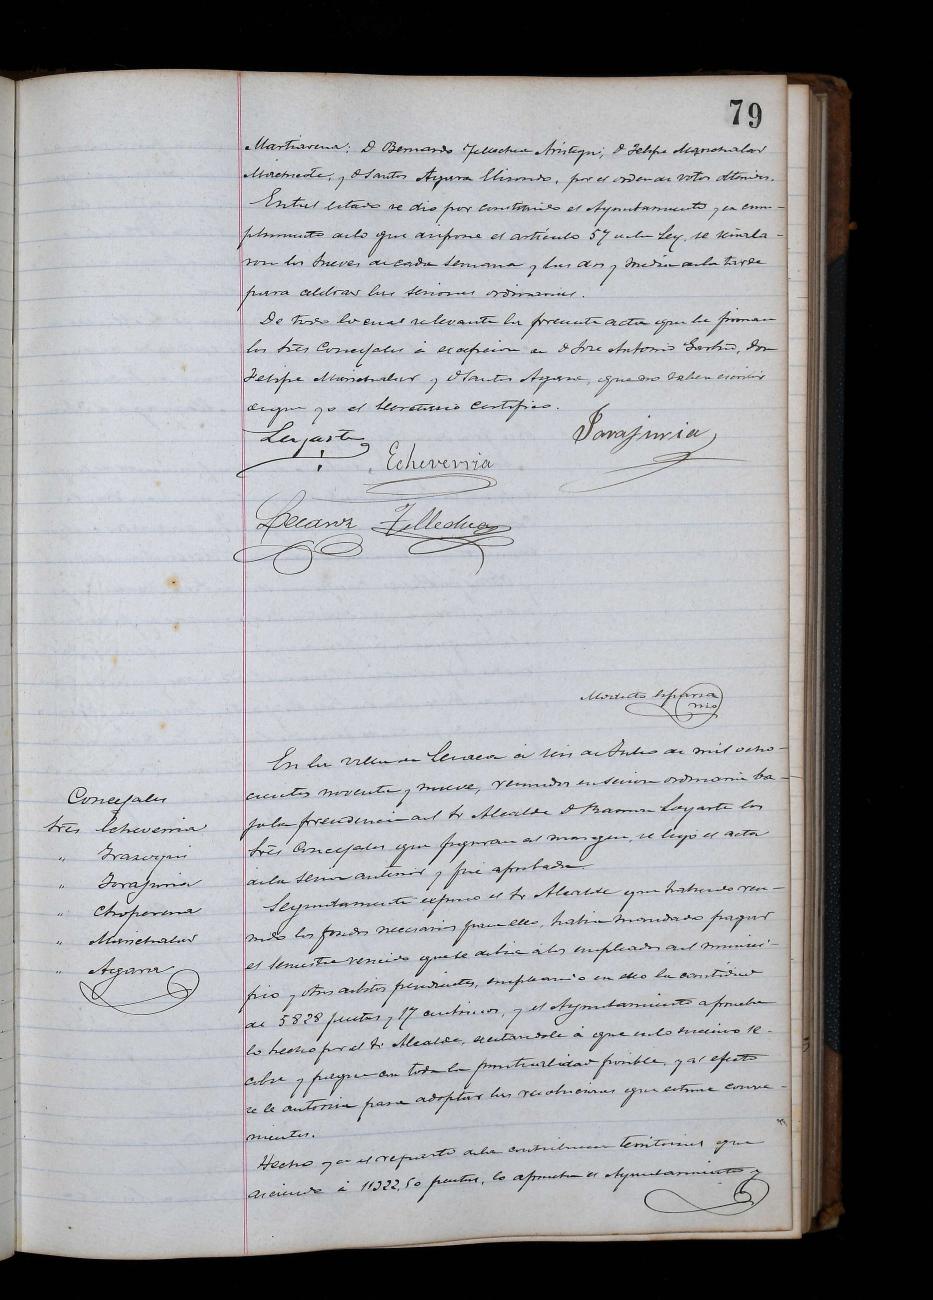 79
Martiarena; D Bernardo Tellechea Aristegui, D Felipe Marichalar
y D Santos Agara Elizondo, por el orden de votos obtenidos.
En tal estado se dio por constituido el Ayuntamiento y en cum-
plimiento de lo que dispone el artículo 57 de la Ley, se señala-
ron los Jueves de cada semana y las dos y media de la tarde
para celebrar las sesiones ordinarias.
De todo lo cual se levanta la presente acta que la firman
los Sres Concejales á excepcion de D José Antonio Gastra, Don
Felipe Marichalar y D Santos Agara, que no saben escribir
de que yo el Secretario certifico.
Legarte
Echeverria
Irazuria
Lecaroz Tellechea
Modesto Esparza
Srio
En la villa de Lesaca á seis de Julio de mil ocho-
cientos noventa y nueve, reunidos en sesion ordinaria ba-
jo la presidencia del Sr Alcalde D Ramon Legarte los
Sres Concejales que figuran al margen, se leyó el acta
de la sesion anterior y fué aprobada.
Concejales
Sres Echeverria
" Irazoqui
" 
" Choperena
" Marichalar
" Agara
Seguidamente expuso el Sr Alcalde que habiendo reu-
nido los fondos necesarios para ello, habia mandado pagar
el semestre vencido que se debia á los empleados del munici-
pio y otros débitos pendientes, empleando en ello la cantidad
de 5828 pesetas y 17 centimos, y el Ayuntamiento aprueba
lo hecho por el Sr Alcalde, excitandole á que en lo sucesivo se
cobre y pague con toda la puntualidad posible, y al efecto
se le autoriza para adoptar las resoluciones que estime conve-
nientes.
Hecho ya el reparto de la contribucion territorial que
asciende á 11322,50 pesetas, lo aprueba el Ayuntamiento y